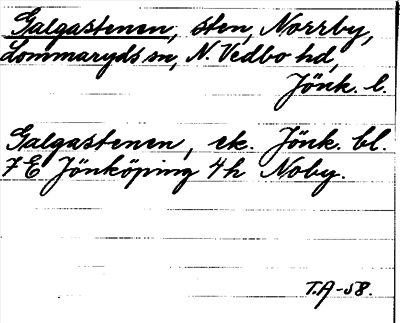 Galgastenen, sten, Norrby,
Lommaryds sn, N. Vedbo hd,
Jönk. l.
Galgastenen, ek. Jönk. bl.
7 E Jönköping 4h Noby.
T.A-58.